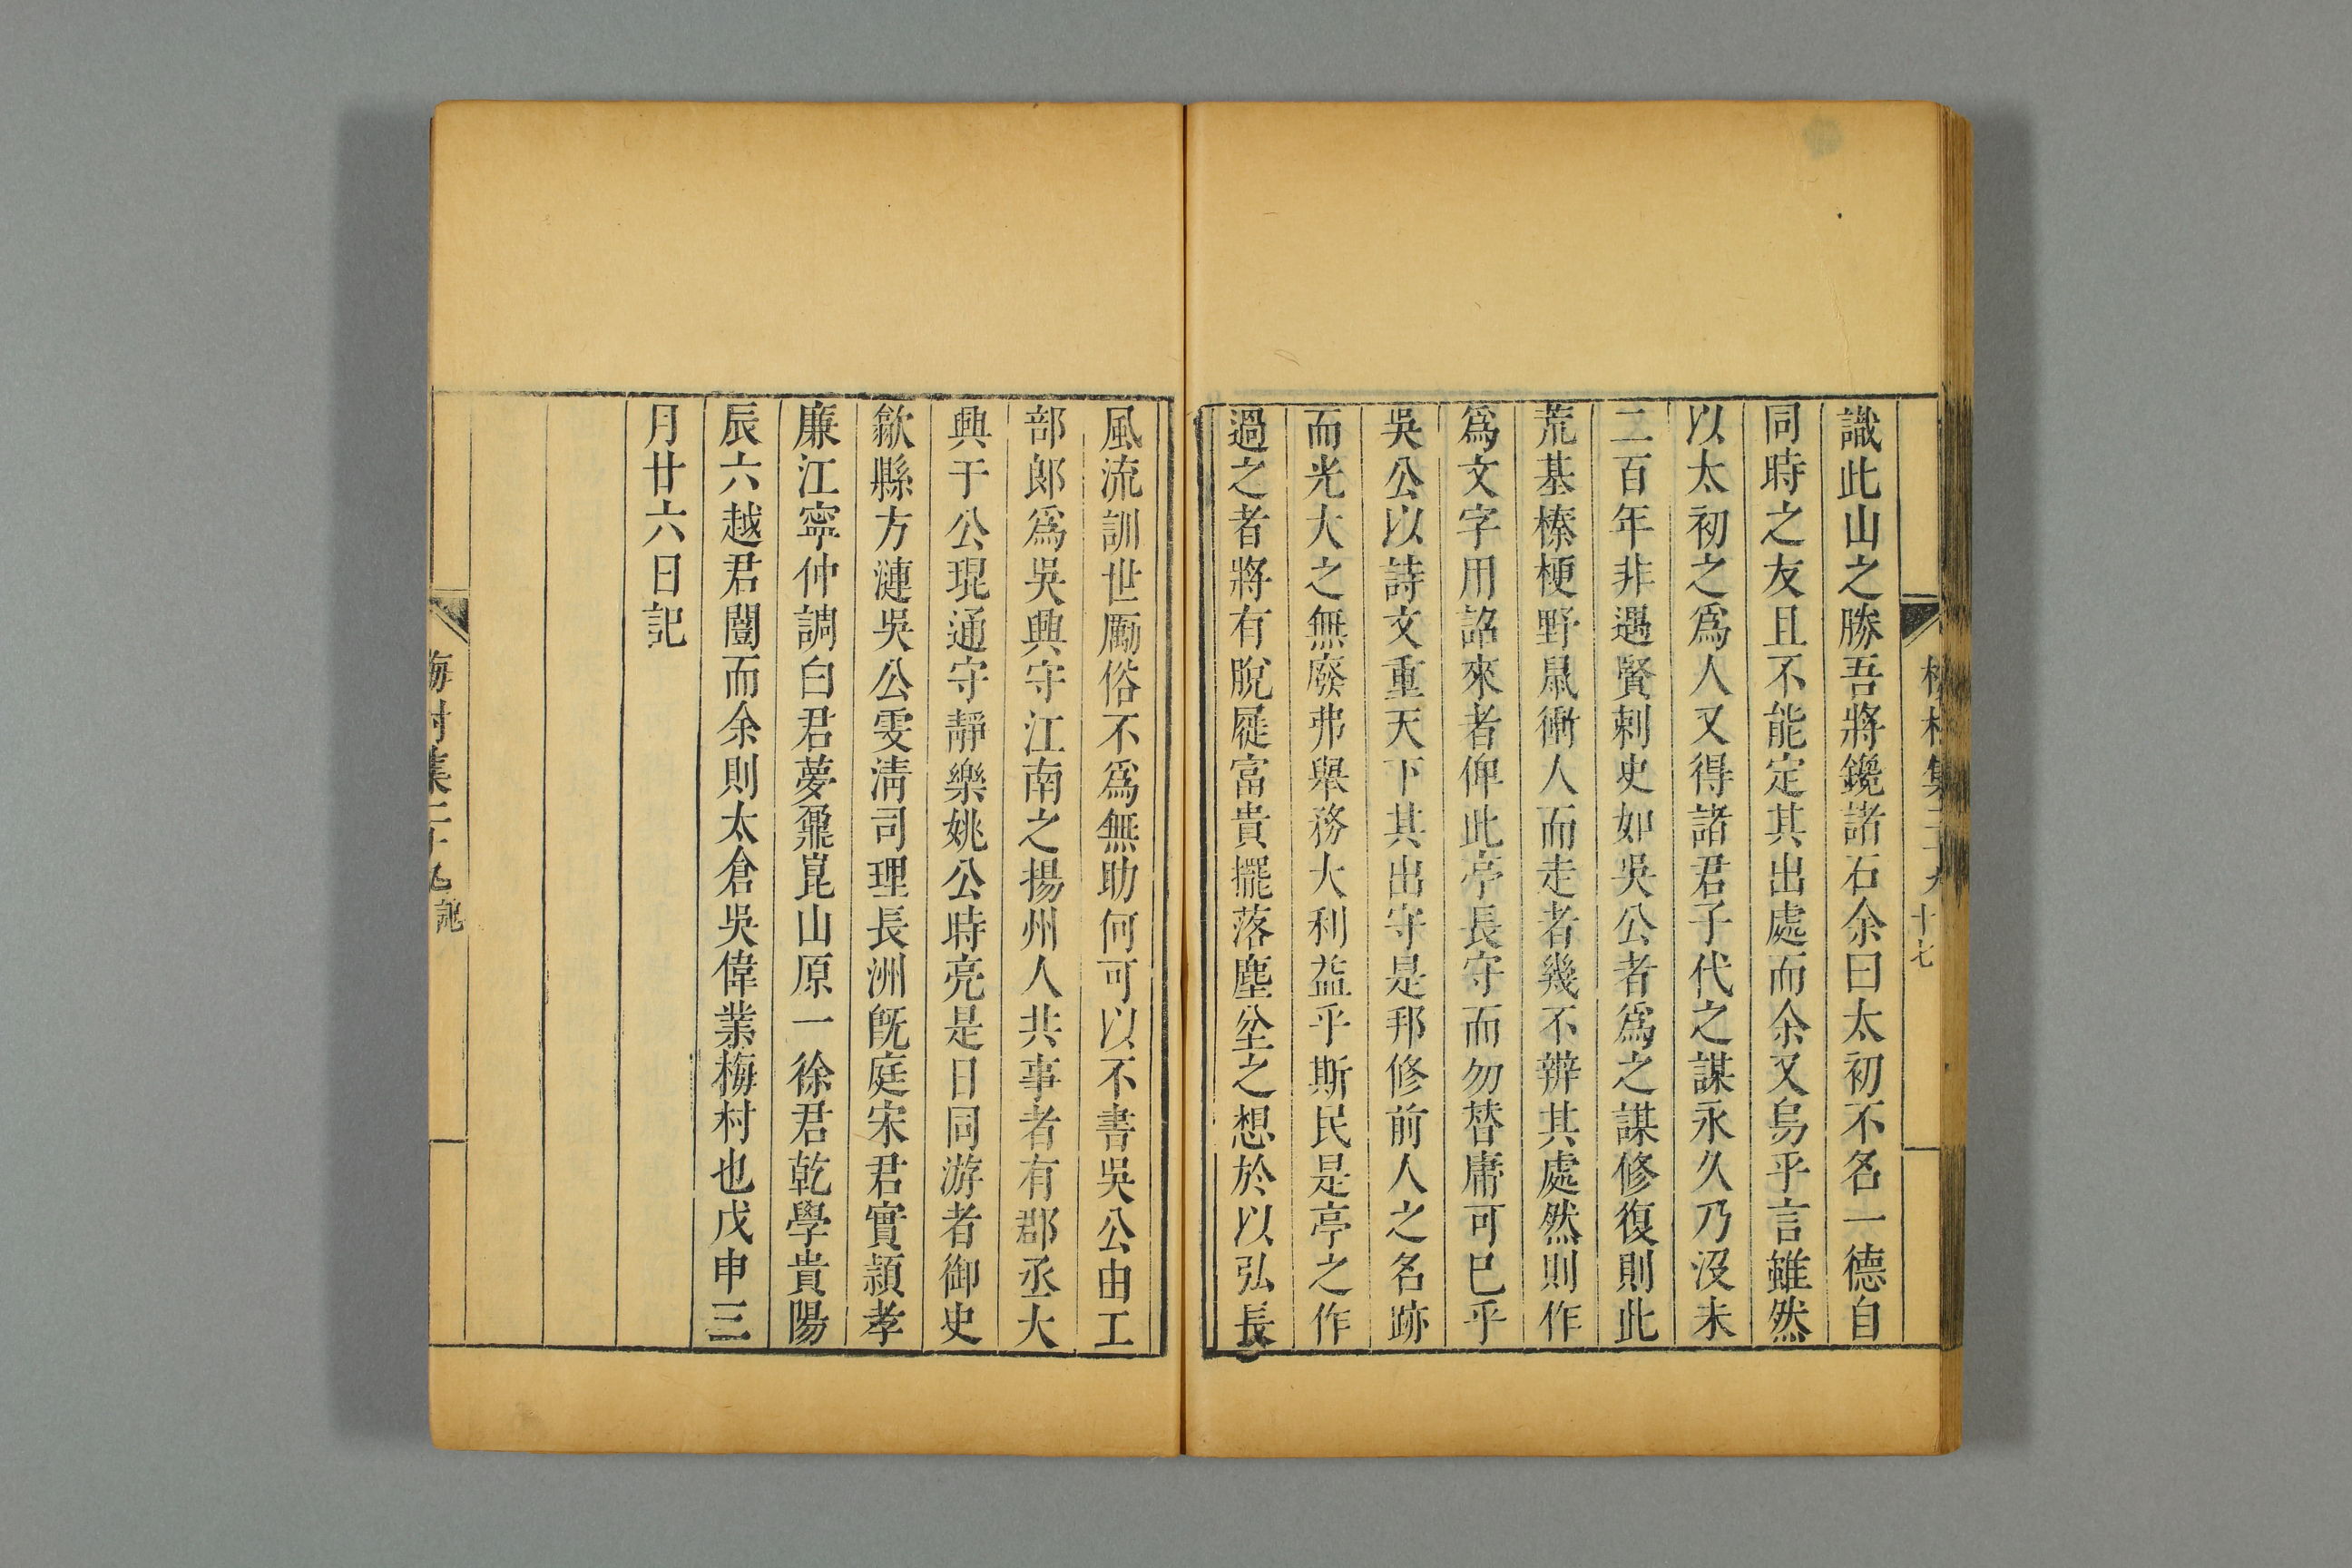 識此山之勝吾將鑱諸石余曰太初不名一德自
同時之友且不能定其出處而余又烏乎言雖然
以太初之爲人又得諸君子代之謀永久乃沒未
二百年非遇賢刺史如吳公者爲之謀修復則此
荒基榛梗野鼠衝人而走者幾不辨其處然則作
爲文字用詔來者俾此亭長守而勿替庸可已乎
吳公以詩文重天下其出守是邦修前人之名跡
而光大之無廢弗舉務大利益乎斯民是亭之作
過之者將有脫屣富貴擺落塵坌之想於以弘長
十七
風流訓世厲俗不爲無助何可以不書吳公由工
部郞爲吳興守江南之揚州人共事者有郡丞大
興于公琨通守靜樂姚公時亮是日同游者御史
歙縣方漣吳公雯淸司理長洲旣庭宋君實穎孝
廉江寧仲調白君夢鼐崑山原一徐君乾學貴陽
辰六越君闓而余則太倉吳偉業梅村也戊申三
月廿六日記
梅村集 記